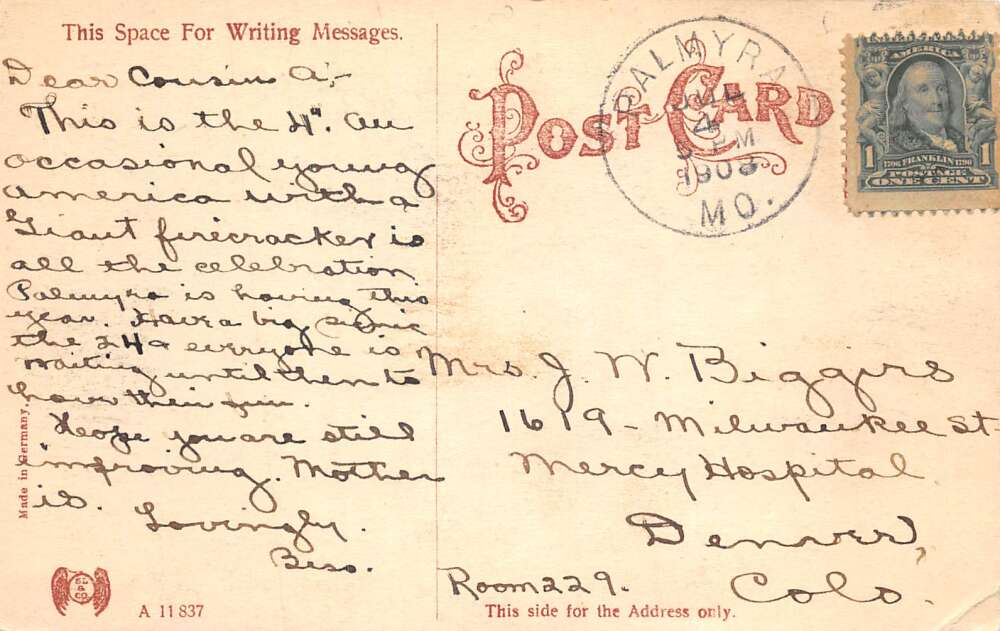 This Space For Writing Messages.
Dear Cousin A,-
This is the 4". An
occasional young
america with a
Giant firecracker is
all the celebration
Palmyra is having this
year. Have a big picnic
the 24 & everyone is
waiting until then to
have their fun.
Hope you are still
improving. Mother
is.
Lovingly.
Bess.
Made in Germany.
A 11837
POST CARD
PALMYRA
JUL
4
5 PM
MO.
AMERICA
1 1
1706 FRANKLIN 1790
POSTAGE
ONE CENT
Mrs. J. W. Biggers
1619 - Milwaukee St-
Mercy Hospital
Denver,
Colo.
Room 229.
This side for the Address only.